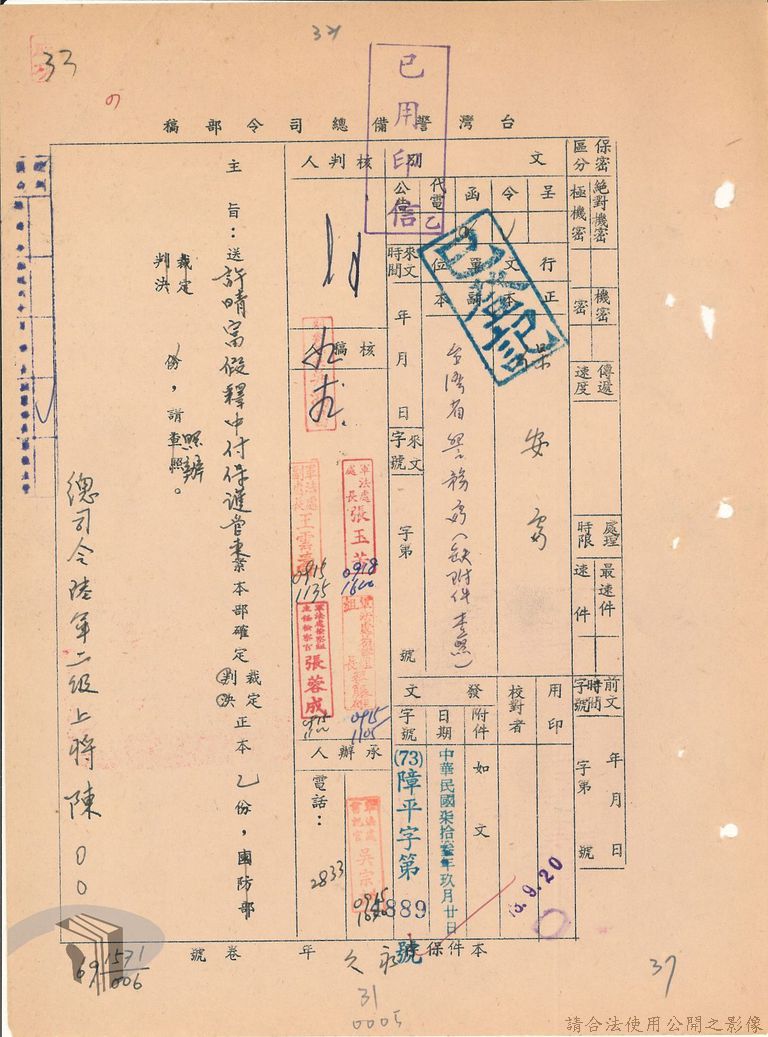 33
已用印信
台灣警備總司令部稿
保密區分
絕對機密
極機密
機密
密
傳遞速度
處理時限
最速件
速件
前文時間字號
年月日
字第 號
文別
呈
令
函
代電
公告
乙
行文單位
正本
副本
已登記
安處
台灣省警務處(缺附件查照)
來文時間
年月日
來文字號
字第 號
用印
校對者
發文
附件
如文
日期
中華民國柒拾叁年玖月廿日
字號
(73)障平字第4889號
73.9.20
核判人
核稿人
軍法處處長張玉芳
0918
1600
軍法處副處長
0915
1135
軍法處檢察組主任檢察官張蓉成
0915
1100
0915
1105
承辦人
電話:2833
軍法處書記官吳宗
0915
主旨:送許晴富假釋中付保護管束案本部確定裁定判決正本乙份,國防部
裁定判決 份,請查照辦。
總司令陸軍二級上將陳○○
本件保 永久 年 卷 號
1571
006
31
0005
37
請合法使用公開之影像